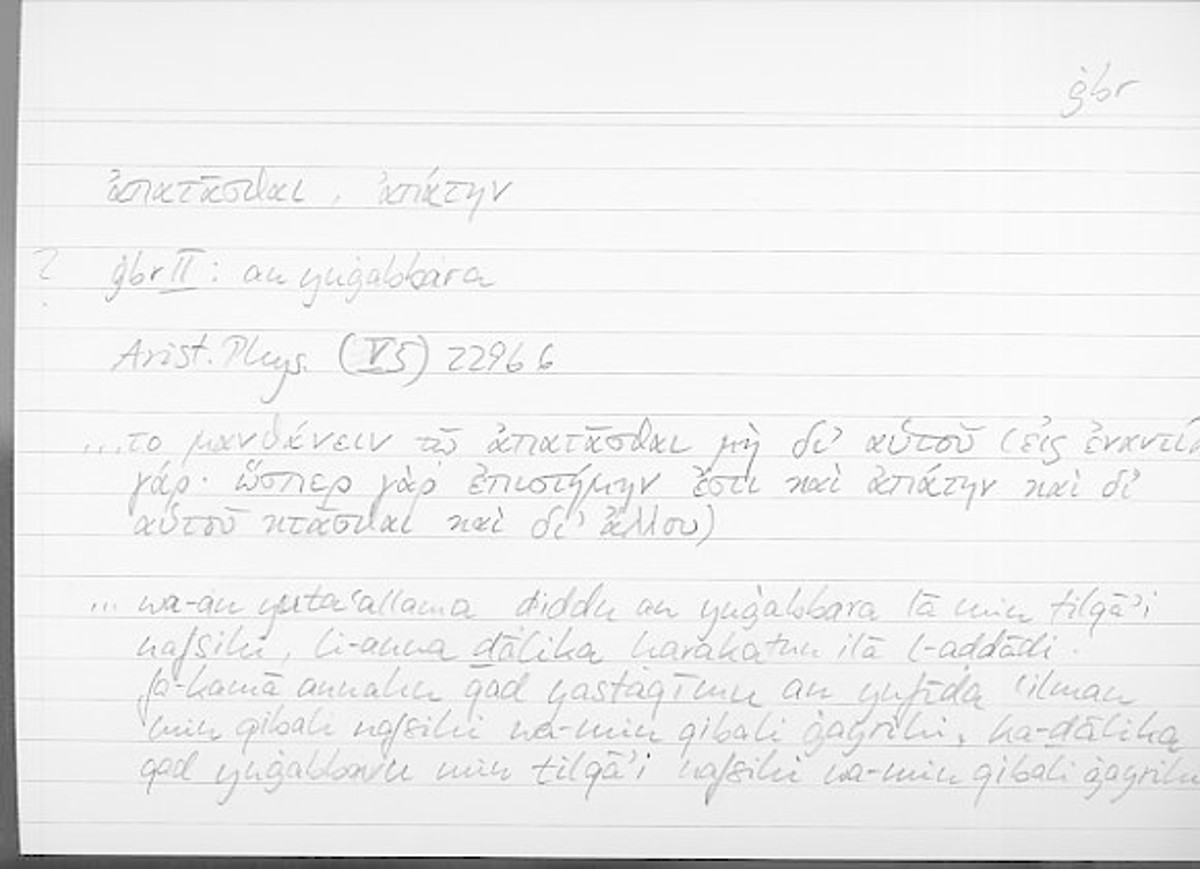 ġbr
ἀπατᾶσθαι , ἀπάτην
? ġbr II : an yuġabbara
Arist. Phys. (V5) 229b6
...το μανθάνειν τῷ ἀπατᾶσθαι μὴ δι' αὑτοῦ (εἰς ἐναντία
γάρ· ὥσπερ γὰρ ἐπιστήμην ἔστι καὶ ἀπάτην καὶ δι'
αὑτοῦ κτᾶσθαι καὶ δι' ἄλλου)
... wa-an yutaʿallama ḍiddu an yuġabbara lā min tilqāʾi
nafsihi, li-anna ḏālika ḥarakatun ilā l-aḍdādi.
fa-kamā annahu qad yastaqīmu an yufīda ʿilman
min qibali nafsihi wa-min qibali ġayrihi, ka-ḏālika
qad yuġabbaru min tilqāʾi nafsihi wa-min qibali ġayrihi